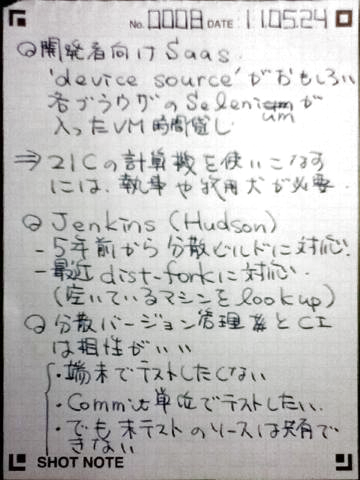 No. 0008 DATE 11.05.24
開発者向けSaas.
'device source'がおもしろい
各ブラウザのSelenium が
um
入ったVM時間貸し
⇒ 21Cの計算機を使いこなす
には、執事や牧用犬が必要.
Jenkins (Hudson)
- 5年前から分散ビルドに対応.
- 最近dist-forkに対応.
(空いているマシンをlookup)
分散バージョン管理系とCI
は相性がいい
・端末でテストしたくない
・Commit単位でテストしたい.
・でも未テストのソースは共有で
きない
SHOT NOTE